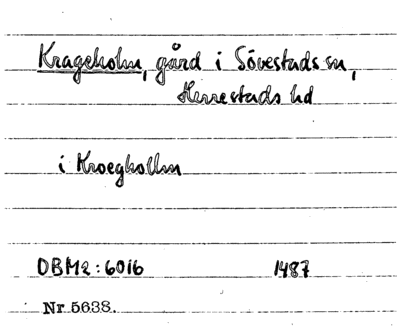 Krageholm, gård i Sövestads sn,
Herrestads hd
i Kroegholm
DBM2:6016 1487
Nr 5638.